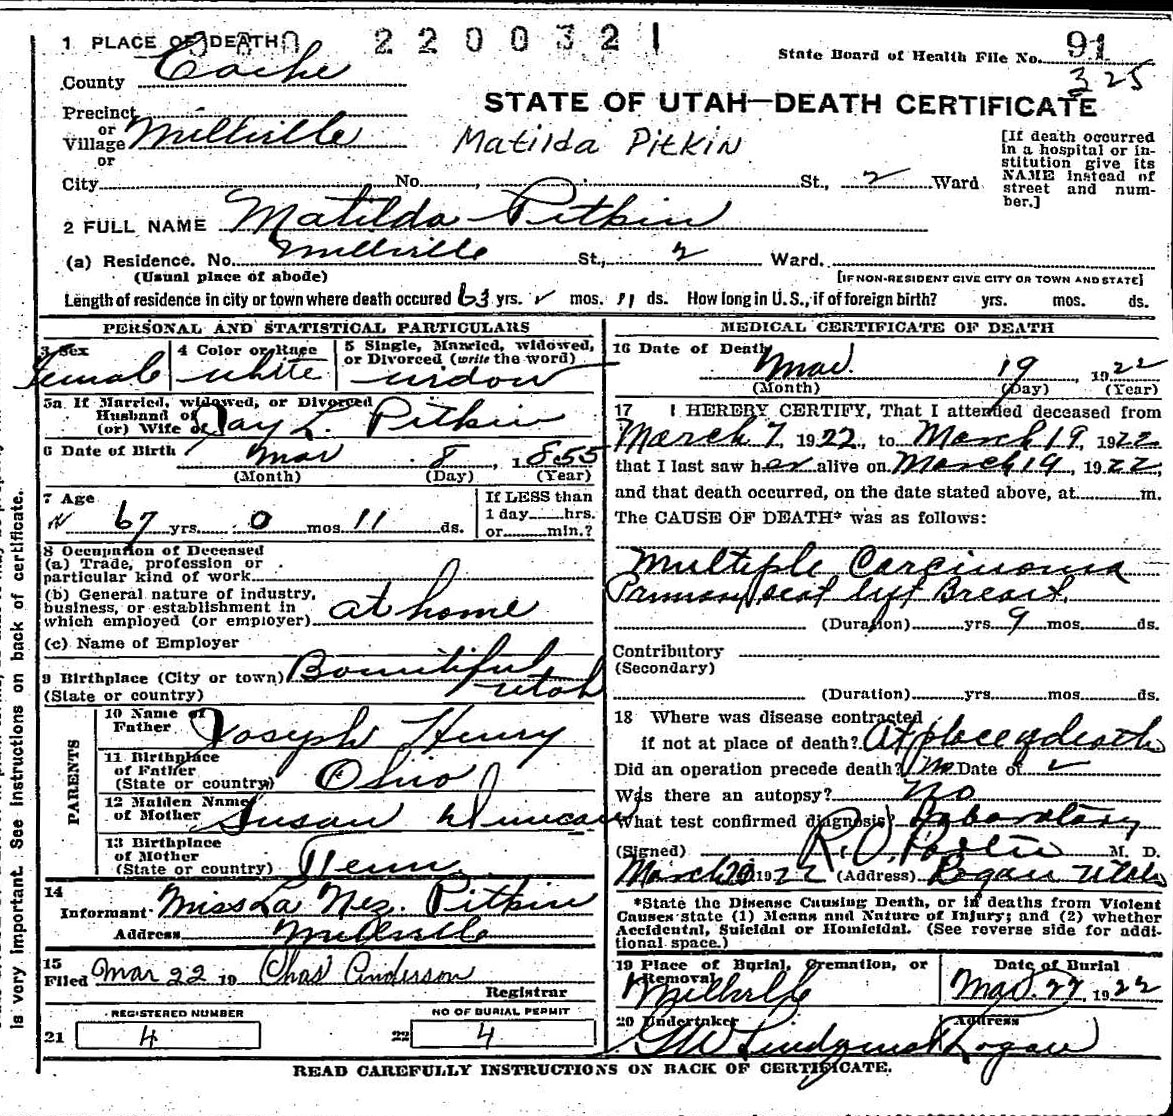 1 PLACE OF DEATH 2 2 0 0 3 2 1 State Board of Health File No. 91
325
County Cache
STATE OF UTAH—DEATH CERTIFICATE
Precinct
or
Village Millville Matilda Pitkin
or
[If death occurred
in a hospital or in-
stitution give its
NAME instead of
street and num-
ber.]
City No. St., 2 Ward
2 FULL NAME Matilda Pitkin
(a) Residence. No. Millville St., 2 Ward.
(Usual place of abode) [IF NON-RESIDENT GIVE CITY OR TOWN AND STATE]
Length of residence in city or town where death occured 63 yrs. ✓ mos. 11 ds. How long in U.S., if of foreign birth? yrs. mos. ds.
PERSONAL AND STATISTICAL PARTICULARS
3 Sex Female
4 Color or Race white
5 Single, Married, widowed,
or Divorced (write the word)
widow
5a If Married, widowed, or Divorced
Husband of
(or) Wife of Jay L. Pitkin
6 Date of Birth Mar 8, 1855
(Month) (Day) (Year)
7 Age
67 yrs. 0 mos. 11 ds.
If LESS than
1 day hrs.
or min.?
8 Occupation of Deceased
(a) Trade, profession or
particular kind of work
(b) General nature of industry,
business, or establishment in
which employed (or employer) at home
(c) Name of Employer
9 Birthplace (City or town) Bountiful
(State or country) Utah
PARENTS
10 Name of
Father Joseph Henry
11 Birthplace
of Father
(State or country) Ohio
12 Maiden Name
of Mother Susan Duncan
13 Birthplace
of Mother
(State or country) Tenn
14
Informant Miss La Nez Pitkin
Address Millville
15
Filed Mar 22 19 Chas Anderson
Registrar
REGISTERED NUMBER
21 4
NO OF BURIAL PERMIT
22 4
MEDICAL CERTIFICATE OF DEATH
16 Date of Death
Mar. 19, 1922
(Month) (Day) (Year)
17 I HEREBY CERTIFY, That I attended deceased from
March 7, 1922, to March 19, 1922
that I last saw her alive on March 19, 1922,
and that death occurred, on the date stated above, at m.
The CAUSE OF DEATH* was as follows:
Multiple Carcinoma
Primary seat left Breast.
(Duration) yrs. 9 mos. ds.
Contributory
(Secondary)
(Duration) yrs. mos. ds.
18 Where was disease contracted
if not at place of death? At place of death
Did an operation precede death? No Date of ✓
Was there an autopsy? No
What test confirmed diagnosis? Laboratory
(Signed) R. O. Porter M. D.
March 20 1922 (Address) Logan Utah
*State the Disease Causing Death, or in deaths from Violent
Causes state (1) Means and Nature of Injury; and (2) whether
Accidental, Suicidal or Homicidal. (See reverse side for addi-
tional space.)
19 Place of Burial, Cremation, or
Removal
Millville
Date of Burial
Mar. 22, 1922
20 Undertaker Address
Logan
READ CAREFULLY INSTRUCTIONS ON BACK OF CERTIFICATE.
is very important. See instructions on back of certificate.